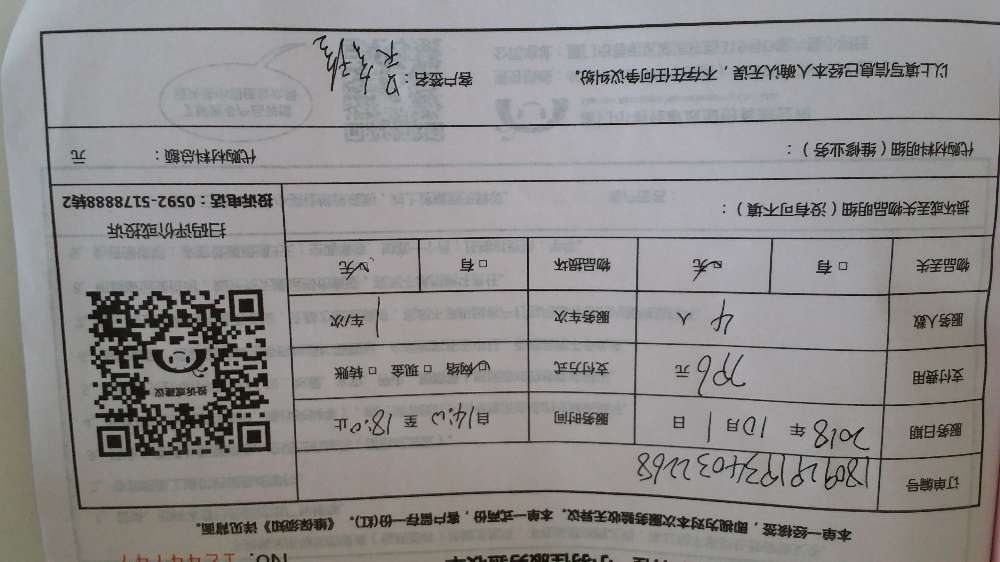 服务验收单 No.
本单一经核签，即视为对本次服务验收无异议。本单一式两份，客户留存一份(红)。《维保须知》详见背面。
订单编号 1809281934032268
服务日期 2018 年 10 月 1 日 服务时间 自 14:00 至 18:00 止
支付费用 元 支付方式 ☑网络 □现金 □转账
服务人数 4 人 服务车次 1 车/次
物品丢失 □有 ☑无 物品损坏 □有 ☑无
投诉或建议
扫码评价或投诉
投诉电话：0592-5178888转2
损坏或丢失物品明细（没有可不填）：
代购材料明细（维修业务）： 代购材料总额： 元
以上填写信息已经本人确认无误，不存在任何争议纠纷。 客户签名：